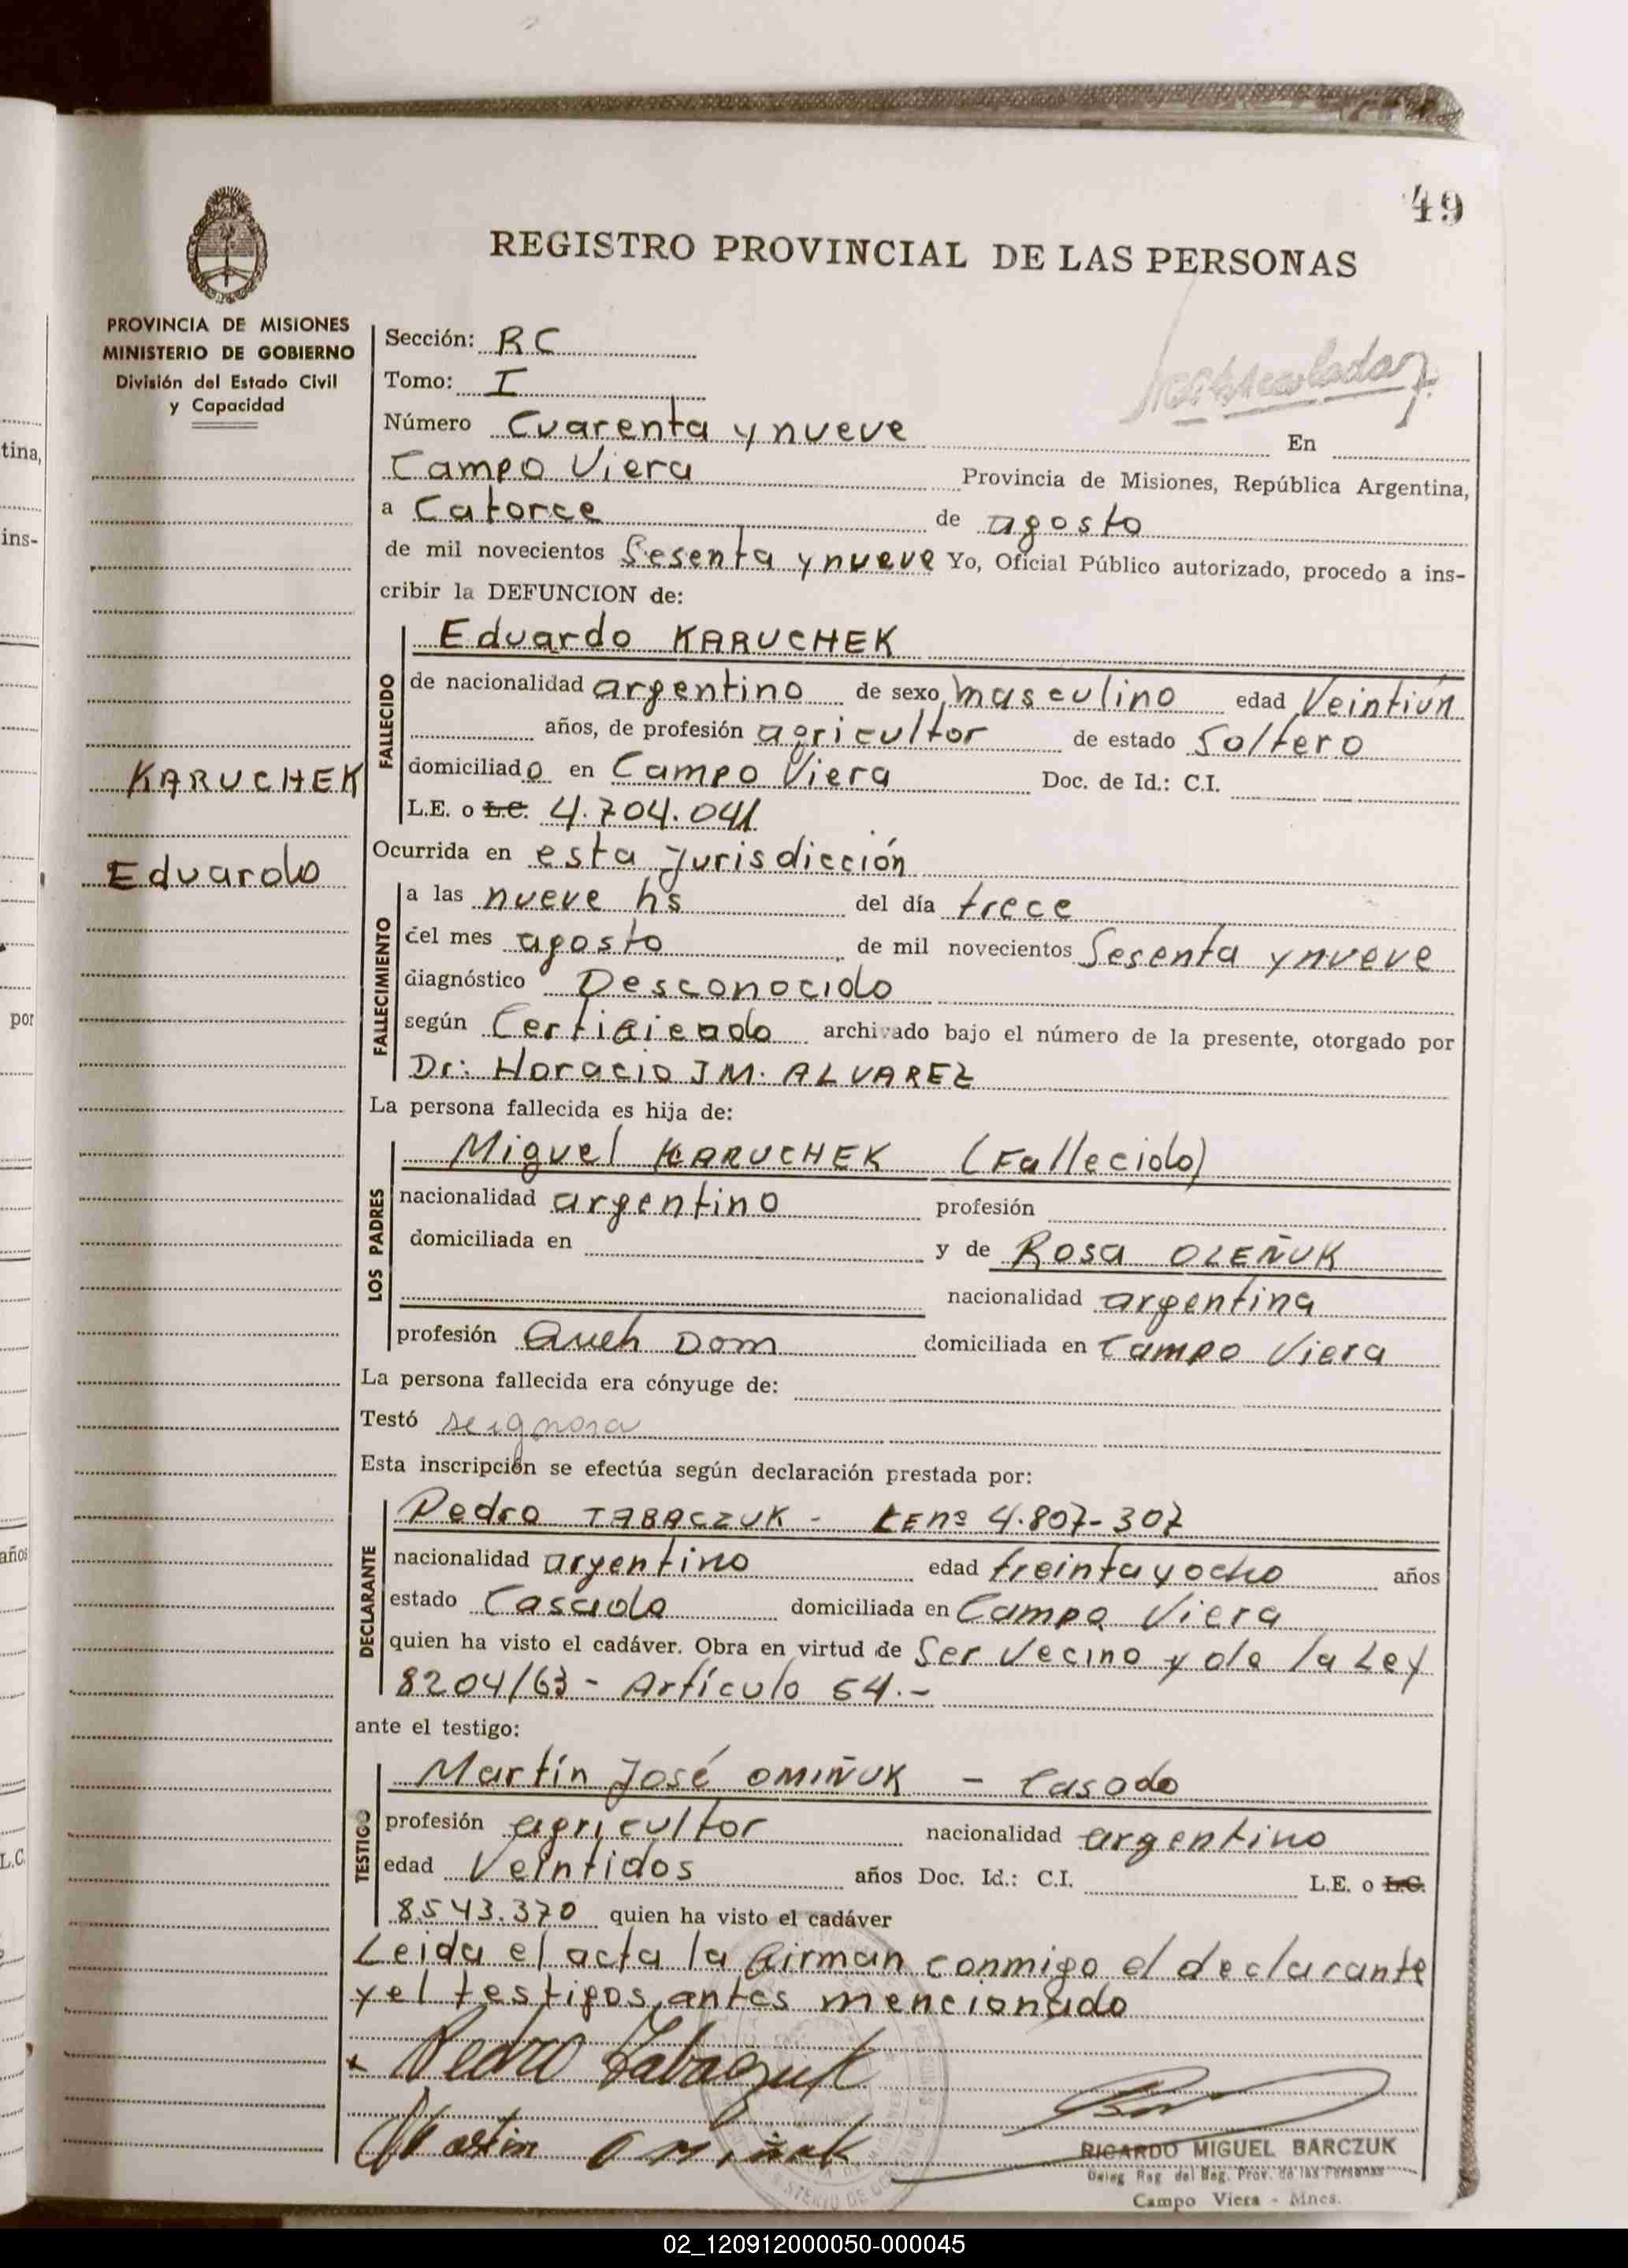 49
REGISTRO PROVINCIAL DE LAS PERSONAS
PROVINCIA DE MISIONES
MINISTERIO DE GOBIERNO
División del Estado Civil
y Capacidad
KARUCHEK
Eduardo
Sección: RC
Tomo: I
Número Cuarenta y nueve En
Campo Viera Provincia de Misiones, República Argentina,
a Catorce de agosto
de mil novecientos Sesenta y nueve Yo, Oficial Público autorizado, procedo a ins-
cribir la DEFUNCION de:
FALLECIDO
Eduardo KARUCHEK
de nacionalidad argentino de sexo masculino edad Veintiún
años, de profesión agricultor de estado Soltero
domiciliado en Campo Viera Doc. de Id.: C.I.
L.E. o L.C. 4.704.041
Ocurrida en esta Jurisdicción
FALLECIMIENTO
a las nueve hs del día trece
del mes agosto de mil novecientos Sesenta y nueve
diagnóstico Desconocido
según archivado bajo el número de la presente, otorgado por
Dr: Horacio J M. ALVAREZ
La persona fallecida es hija de:
LOS PADRES
Miguel KARUCHEK (Fallecido)
nacionalidad argentino profesión
domiciliada en y de Rosa OLEÑUK
nacionalidad argentina
profesión Queh Dom domiciliada en Campo Viera
La persona fallecida era cónyuge de:
Testó se ignora
Esta inscripción se efectúa según declaración prestada por:
DECLARANTE
Pedro TABACZUK - LE nº 4.807-307
nacionalidad argentino edad treinta y ocho años
estado Casado domiciliada en Campo Viera
quien ha visto el cadáver. Obra en virtud de Ser Vecino y de la Ley
8204/63 - Artículo 54.-
ante el testigo:
TESTIGO
Martín José OMIÑUK - Casado
profesión agricultor nacionalidad argentino
edad Veintidos años Doc. Id.: C.I. L.E. o L.C.
8.543.370 quien ha visto el cadáver
Leida el acta la firman conmigo el declarante
y el testigos, antes mencionado
Pedro Tabaczuk
Martin Omiñuk
RICARDO MIGUEL BARCZUK
Deleg Reg del Reg. Prov. de las Personas
Campo Viera - Mnes.
02_120912000050-000045